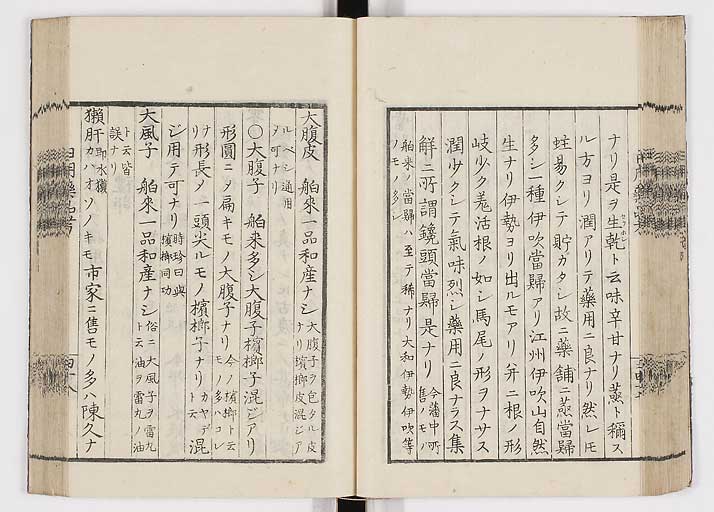 ナリ是ヲ生乾ト云味辛甘ナリ蒸ト稱ス
ル方ヨリ潤アリテ藥用ニ良ナリ然レモ
蛀易クシテ貯カタシ故ニ藥舗ニ蒸當歸
多シ一種伊吹當歸アリ江州伊吹山自然
生ナリ伊勢ヨリ出ルモアリ并ニ根ノ形
岐少ク羗活根ノ如シ馬尾ノ形ヲナサス
潤少クシテ氣味烈シ藥用ニ良ナラス集
解ニ所謂鏡頭當歸是ナリ今藩中所售ノモノ
舶來ノ當歸ハ至テ稀ナリ大和伊勢伊吹等
ノモノ多シ
大腹皮 舶來一品和産ナシ大腹子ヲ包タル皮ナリ檳榔皮混ジア
ルベシ通用
ヲ可ナリ
〇大腹子 舶来多シ大腹子檳榔子混ジアリ
形圓ニヲ扁キモノ大腹子ナリ今ノ檳榔ト云モノ多ハコレ
ナリ形長ノ一頭尖ルモノ檳榔子ナリカヤデト云混
ジ用テ可ナリ時珍曰與檳榔同功
大風子 舶來一品和産ナシ俗ニ大風子ヲ雷丸ト云油ヲ雷丸ノ油
ト云皆
誤ナリ
獺肝即水獺カハオソノキモ市家ニ售モノ多ハ陳久ナ